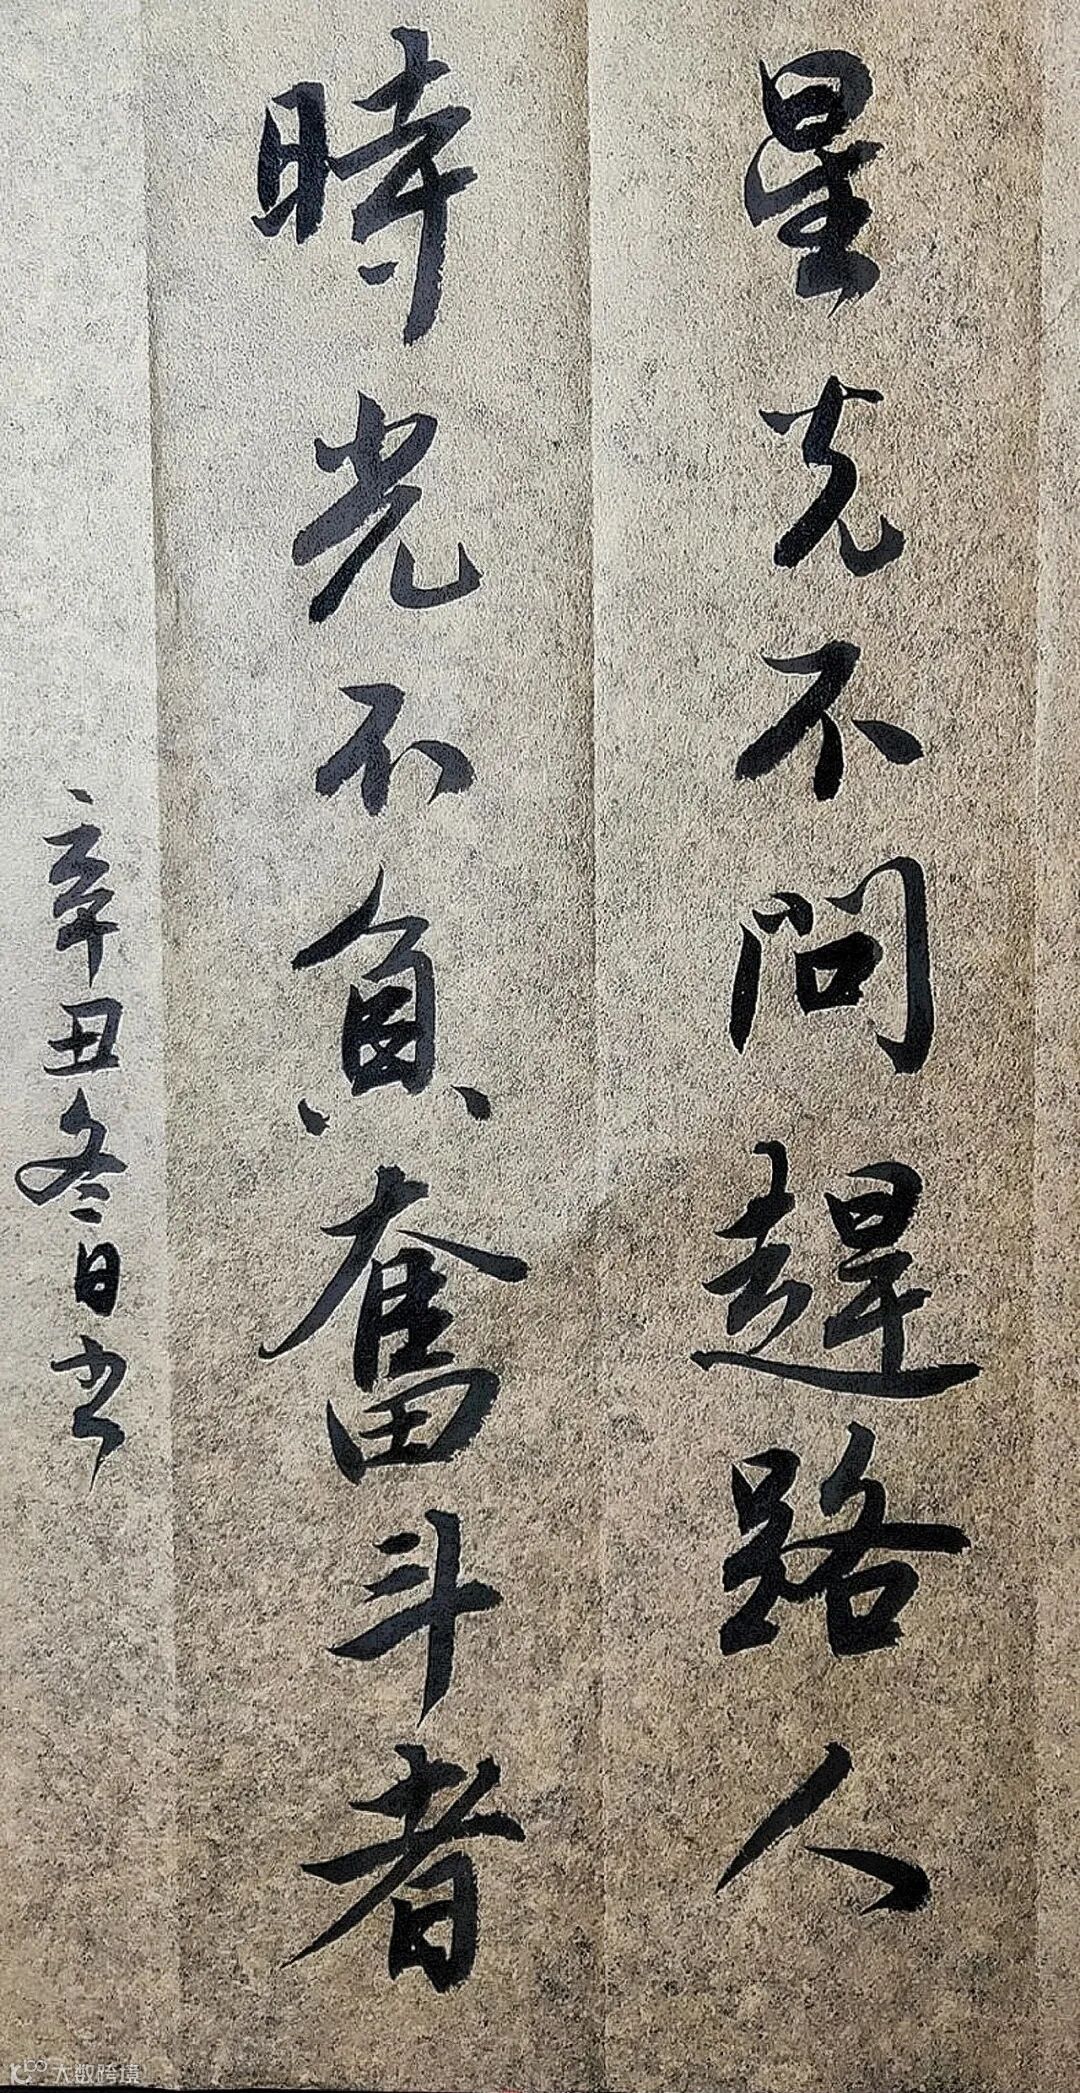 星光不问趕路人
時光不負奮斗者
辛丑冬日书
大数跨境